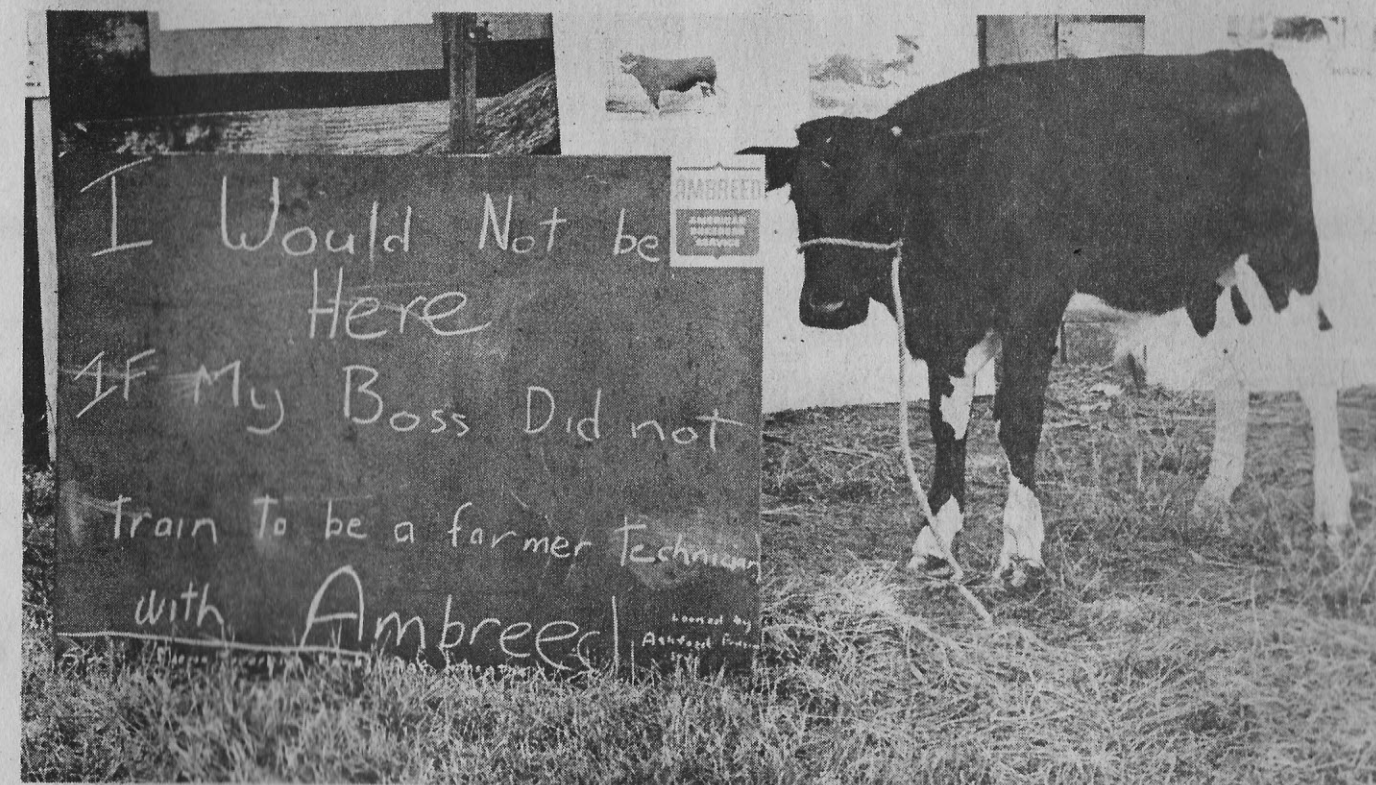 I Would Not be
AMBREED
Here
IF My Boss Did not
Train To be a farmer Technician
with Ambreed
Loaned by
Ashford